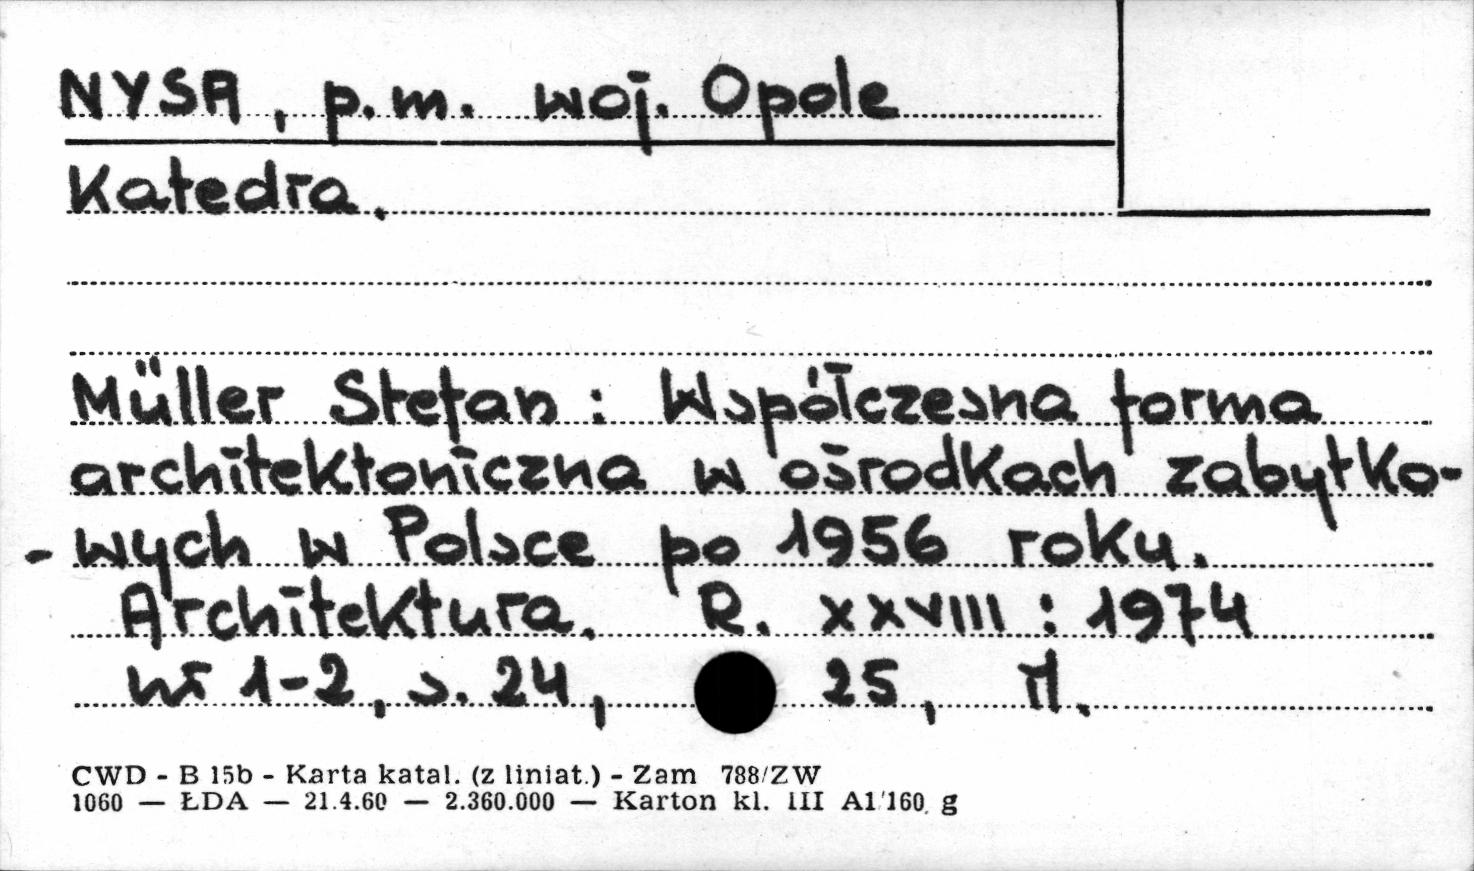 NYSA, p.m. woj. Opole
Katedra.
Müller Stefan: Współczesna forma
architektoniczna w ośrodkach zabytko-
-wych w Polsce po 1956 roku.
Architektura. R. XXVIII: 1974
nr 1-2, s. 24, 25, il.
CWD - B 15b - Karta katal. (z liniat.) - Zam 788/ZW
1060 — ŁDA — 21.4.60 — 2.360.000 — Karton kl. III A1/160 g